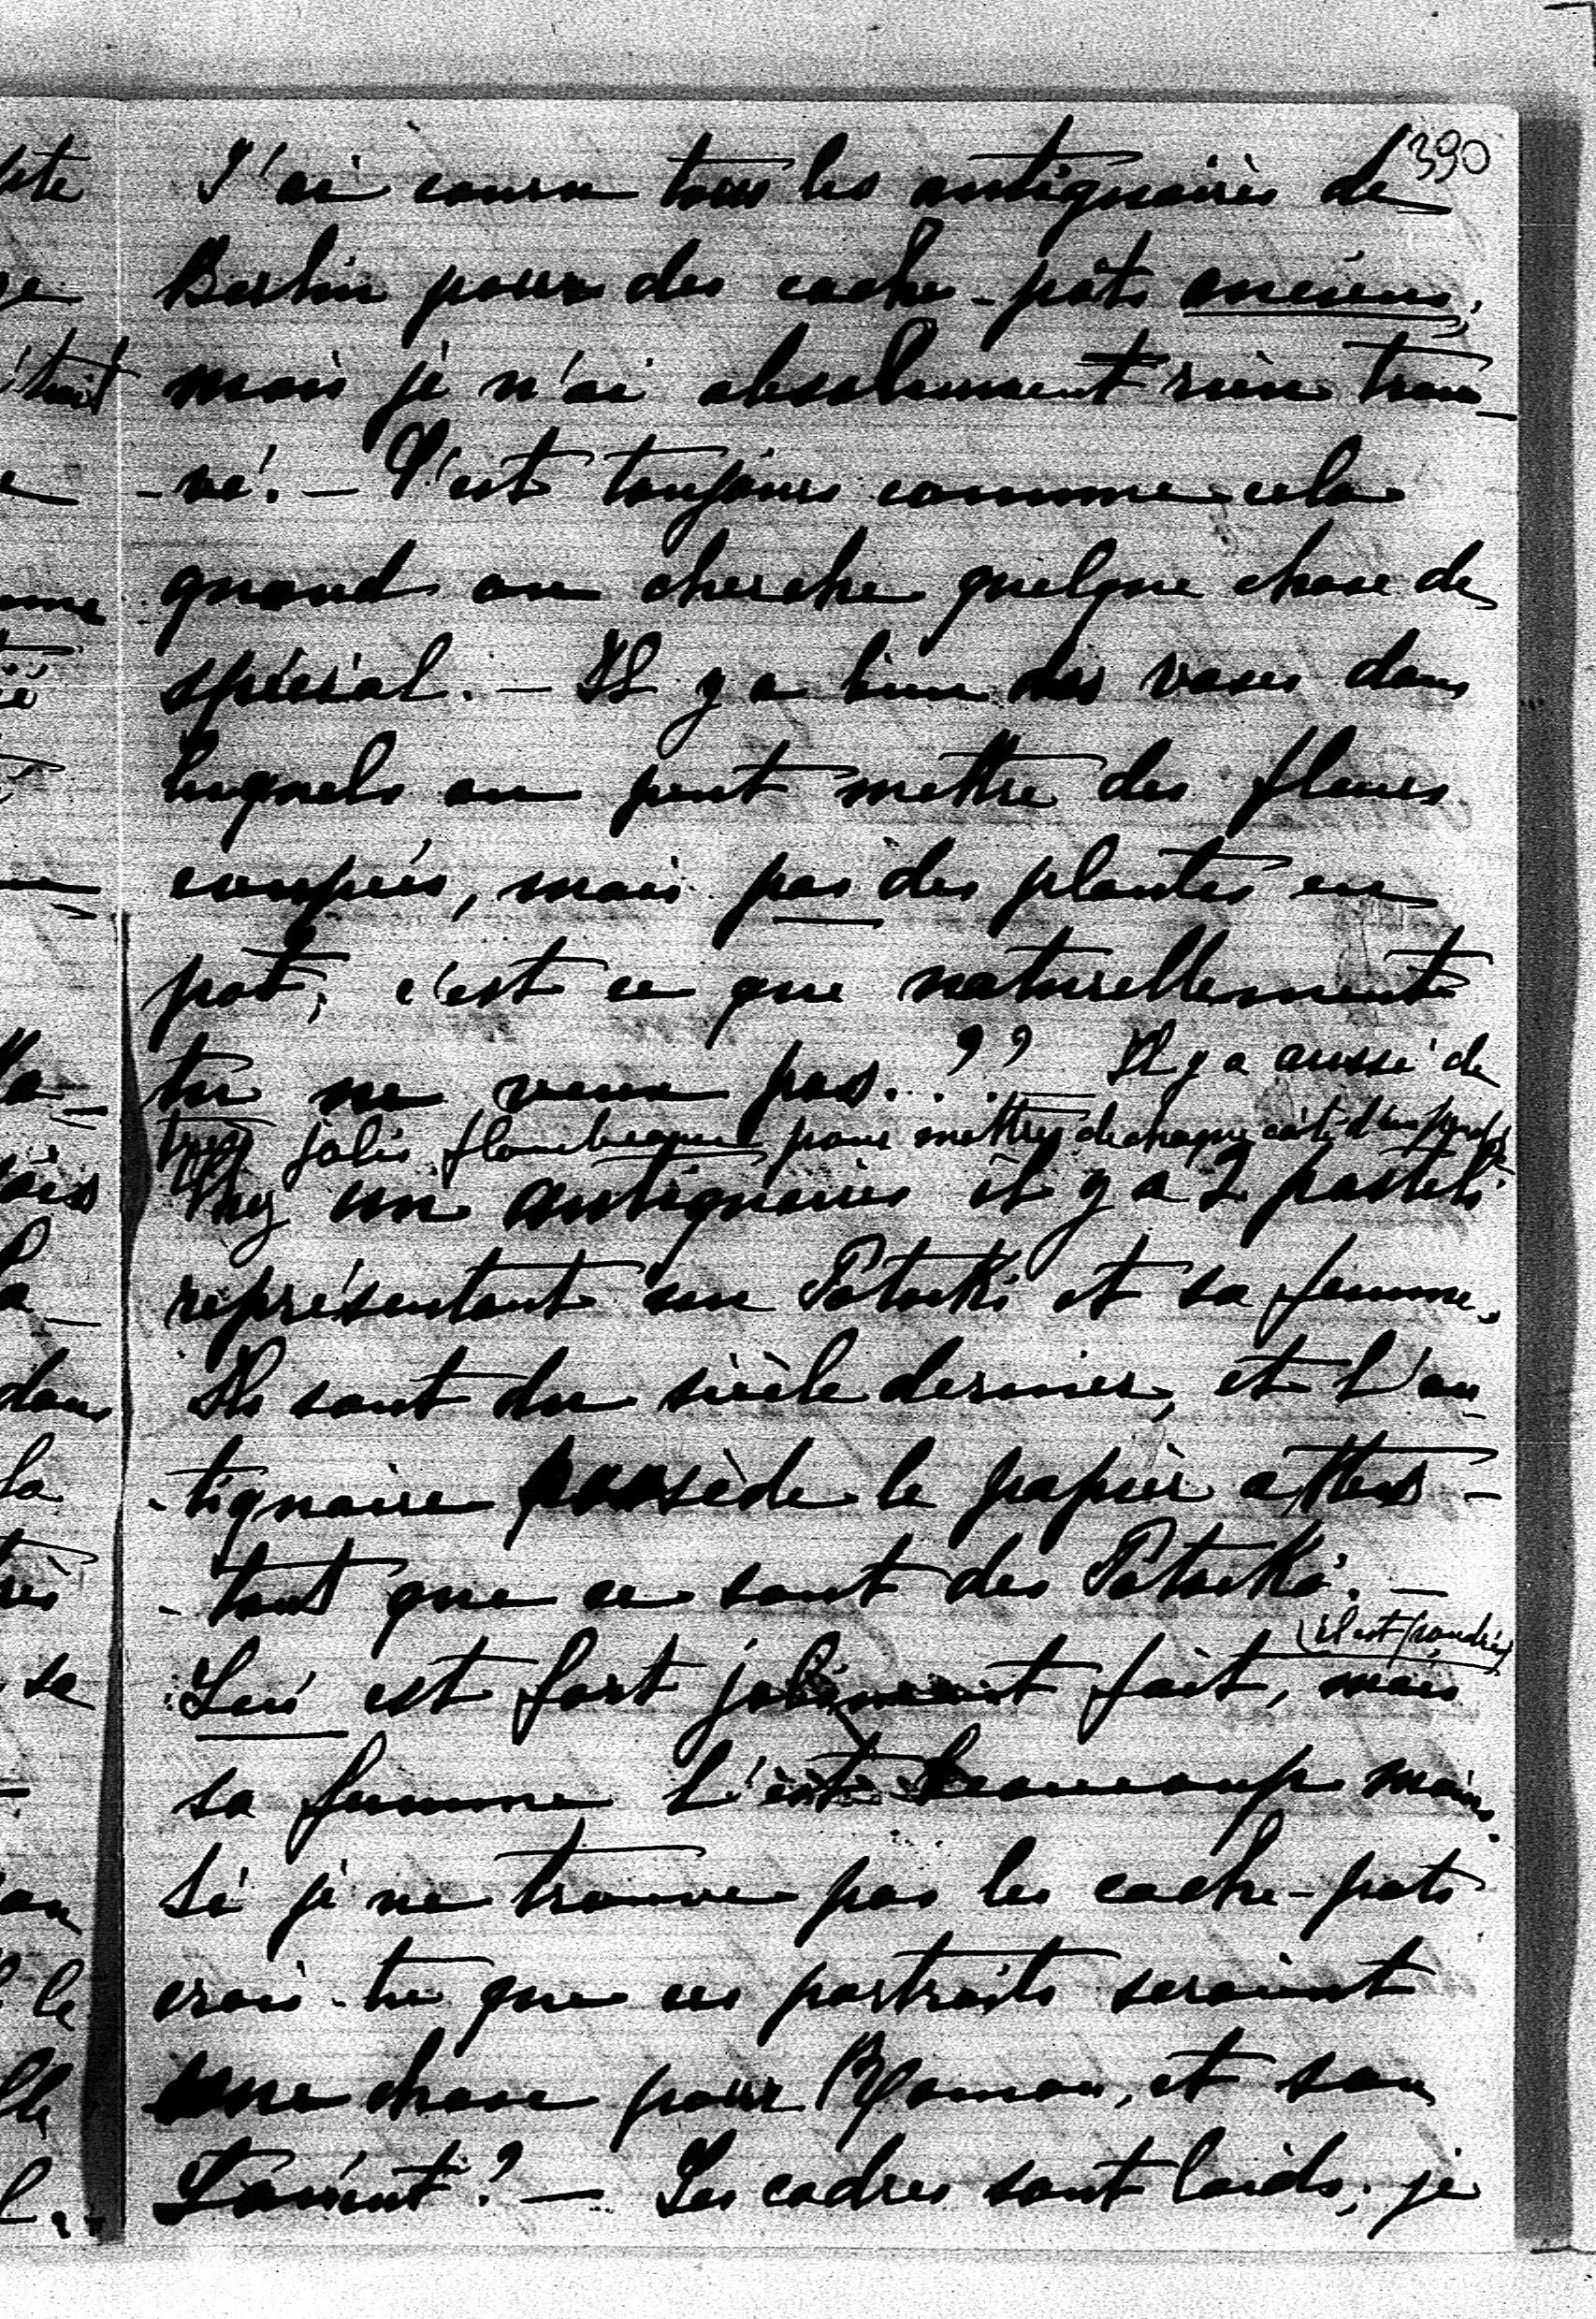 390
J'ai couru tous les antiquaires de
Berlin pour des cache-pots anciens,
mais je n'ai absolument rien trou-
-vé. — C'est toujours comme cela
quand on cherche quelque chose de
spécial. — Il y a bien des vases dans
lesquels on peut mettre des fleurs
coupées, mais pas des plantes en
pot, c'est ce que naturellement
tu ne veux pas..?? — Il y a aussi de
très jolis flambeaux pour mettre de chaque côté d'un
Chez un antiquaire il y a 2 pastels
représentant un Potocki et sa femme.
Ils sont du siècle dernier, et l'an-
-tiquaire possède le papier attes-
-tant que ce sont des Potocki. —
(il est poudré)
Lui est fort joliment fait, mais
sa femme l'est beaucoup moins.
Si je ne trouve pas les cache-pots
crois-tu que ces portraits seraient
une chose pour Roman, et son
Lancut? — Les cadres sont laids, je